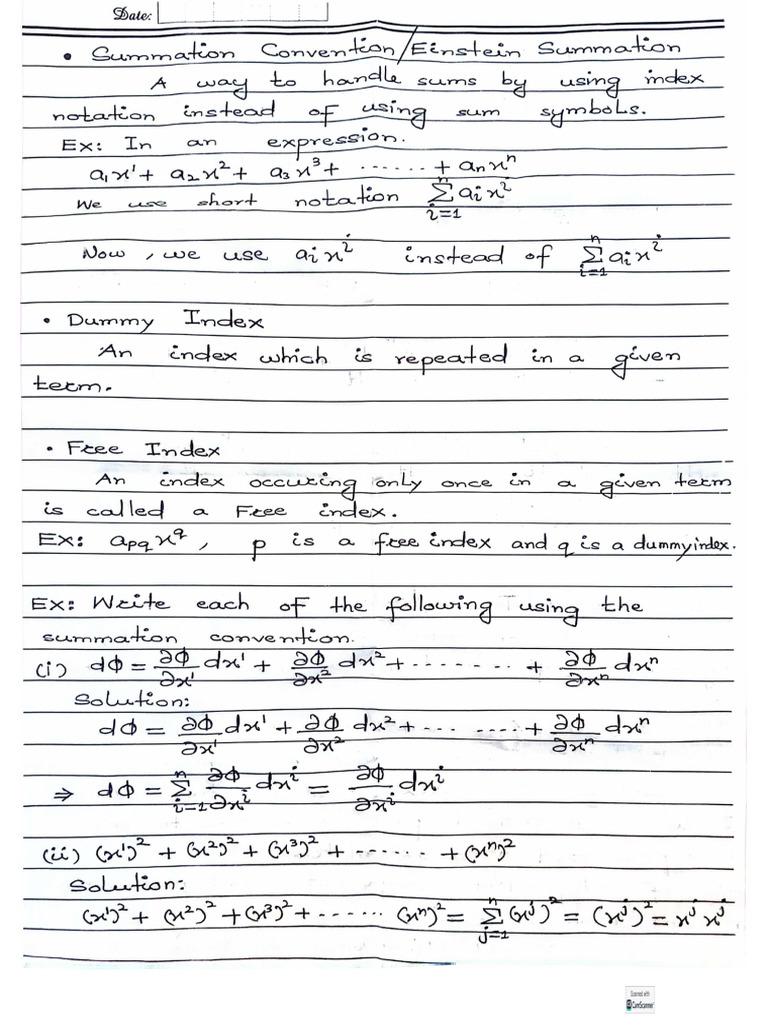 Date:
• Summation Convention/Einstein Summation
A way to handle sums by using index
notation instead of using sum symbols.
Ex: In an expression.
a₁x¹ + a₂x² + a₃x³ + ...... + aₙxⁿ
We use short notation Σⁿᵢ₌₁ aᵢxⁱ
Now, we use aᵢxⁱ instead of Σⁿᵢ₌₁ aᵢxⁱ
• Dummy Index
An index which is repeated in a given
term.
• Free Index
An index occuring only once in a given term
is called a Free index.
Ex: a_pq x^q, p is a free index and q is a dummy index.
Ex: Write each of the following using the
summation convention.
(i) dΦ = ∂Φ/∂x¹ dx¹ + ∂Φ/∂x² dx² + ........ + ∂Φ/∂xⁿ dxⁿ
Solution:
dΦ = ∂Φ/∂x¹ dx¹ + ∂Φ/∂x² dx² + ........ + ∂Φ/∂xⁿ dxⁿ
⇒ dΦ = Σⁿᵢ₌₁ ∂Φ/∂xⁱ dxⁱ = ∂Φ/∂xⁱ dxⁱ
(ii) (x¹)² + (x²)² + (x³)² + ........ + (xⁿ)²
Solution:
(x¹)² + (x²)² + (x³)² + ........ (xⁿ)² = Σⁿⱼ₌₁ (xʲ)² = (xʲ)² = xʲ xʲ
Scanned with
CamScanner